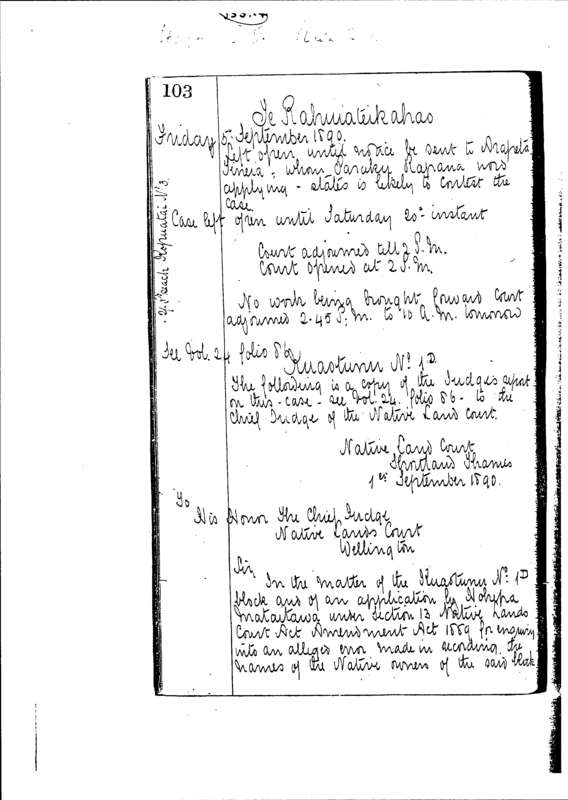 103
Te Rahuiateikahao
Friday 5th September 1890.
Left open until notice be sent to Arapeta
whom Taraku Rapana was
applying - states is likely to contest the
case
Case left open until Saturday 20th instant
Court adjourned till 2 P.M.
Court opened at 2 P.M.
No work being brought forward Court
adjourned 2.45 P.M. to 10 A.M. tomorrow
See Vol. 24 folio 86
Kuaotunu No. 1D
The following is a copy of the Judge's report
on this case - see Vol. 24. folio 86 - to the
Chief Judge of the Native Land Court.
Native Land Court
Shortland Thames
1st September 1890.
To
His Honor The Chief Judge
Native Lands Court
Wellington
Sir
In the matter of the Kuaotunu No. 1D
block and of an application by Hohepa
Mataitawa under section 13 Native Lands
Court Act Amendment Act 1889 for enquiry
into an alleged error made in recording the
names of the Native owners of the said block